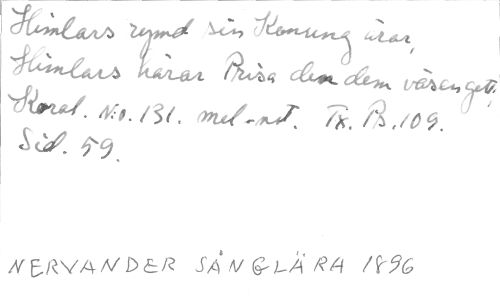 Himlars rymd sin Konung ärar,
Himlars härar Prisa den dem väsen gett,
Koral. N:o. 131. mel-not. Tx. Ps. 109.
Sid. 59.
NERVANDER SÅNGLÄRA 1896